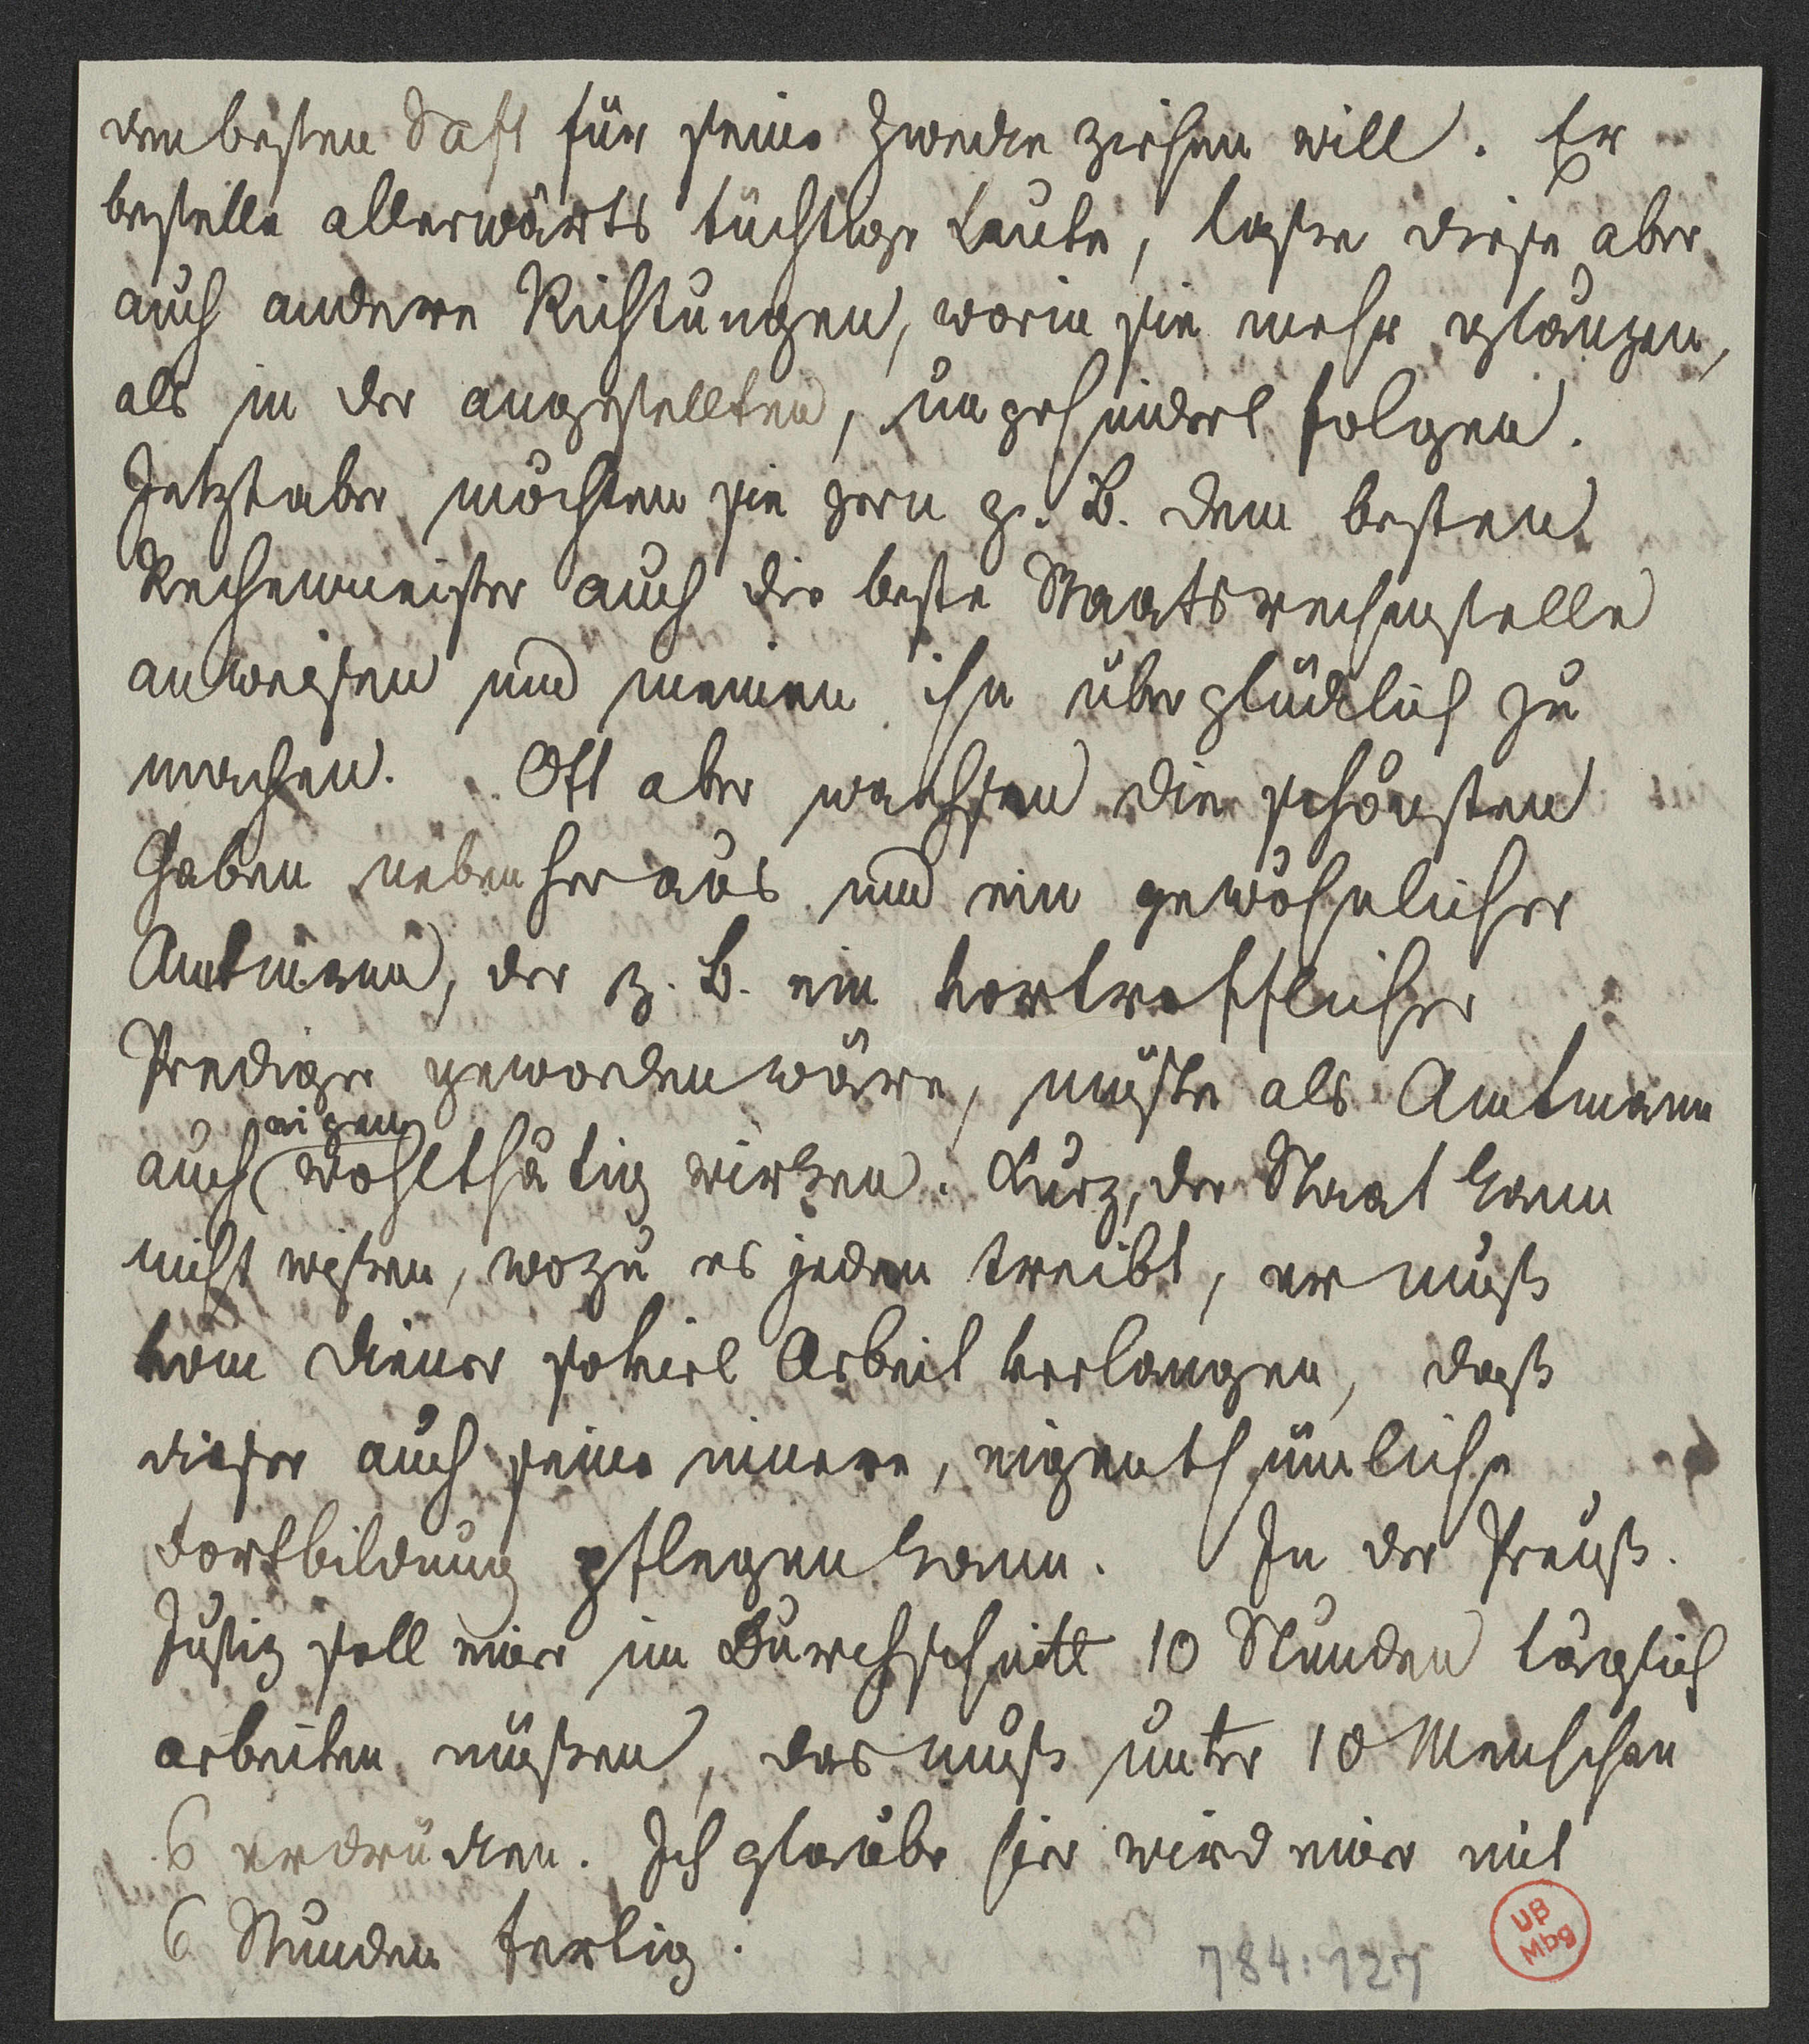 den besten Saft für seine Zwecke ziehen will. Er
bestelle allerwärts tüchtige Leute, laße diese aber
auch andere Richtungen, worin sie mehr glänzen,
als in der angestellten, ungehindert folgen.
Jetzt aber möchten sie gern z. B. dem besten
Rechenmeister auch die beste Staatsrechenstelle
anweisen und meinen ihn überglücklich zu
machen. Oft aber wachsen die schönsten
Gaben nebenheraus und ein gewöhnlicher
Amtmann, der z. B. ein vortrefflicher
Prediger geworden wäre, müßte als Amtmann
eigen
auch wohlthätig wirken. Kurz, der Staat kann
nicht wißen, wozu es jeden treibt, er muß
vom Diener soviel Arbeit verlangen, daß
dieser auch seine innere, eigenthümliche
Fortbildung pflegen kann. In der Preuß.
Justiz soll man im Durchschnitt 10 Stunden täglich
arbeiten müßen, das muß unter 10 Menschen
6 erdrücken. Ich glaube hier wird man mit
6 Stunden fertig.
784:127
UB
Mbg